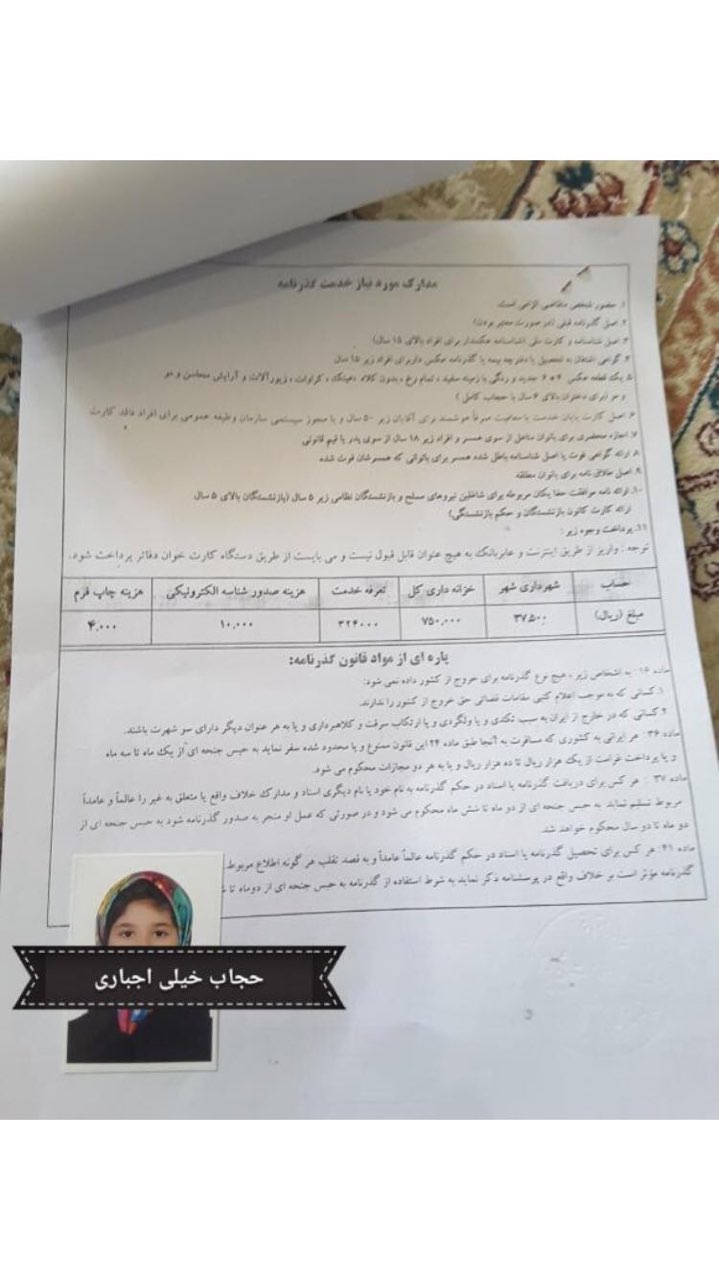 مدارک مورد نیاز خدمت گذرنامه
۱. حضور شخص متقاضی الزامی است.
۲. اصل گذرنامه قبلی (در صورت معتبر بودن)
۳. اصل شناسنامه و کارت ملی (شناسنامه عکسدار برای افراد بالای ۱۵ سال)
۴. گواهی اشتغال به تحصیل یا دفترچه بیمه یا گذرنامه عکس دار برای افراد زیر ۱۵ سال
۵. یک قطعه عکس ۴*۶ جدید و رنگی با زمینه سفید، تمام رخ، بدون کلاه، عینک، کراوات، زیورآلات و آرایش محاسن و مو
و سر (برای دختران بالای ۶ سال با حجاب کامل)
۶. اصل کارت پایان خدمت یا معافیت صرفاً هوشمند برای آقایان زیر ۵۰ سال و یا مجوز سیستمی سازمان وظیفه عمومی برای افراد فاقد کارت
۷. اجازه محضری برای بانوان متاهل از سوی همسر و افراد زیر ۱۸ سال از سوی پدر یا قیم قانونی
۸. ارائه گواهی فوت یا اصل شناسنامه باطل شده همسر برای بانوانی که همسرشان فوت شده
۸. اصل طلاق نامه برای بانوان مطلقه
۱۰. ارائه نامه موافقت حفا یگان مربوطه برای شاغلین نیروهای مسلح و بازنشستگان نظامی زیر ۵ سال (بازنشستگان بالای ۵ سال
ارائه کارت کانون بازنشستگان و حکم بازنشستگی)
۱۱. پرداخت وجوه زیر:
توجه: واریز از طریق اینترنت و عابربانک به هیچ عنوان قابل قبول نیست و می بایست از طریق دستگاه کارت خوان دفاتر پرداخت شود.
حساب شهرداری شهر خزانه داری کل تعرفه خدمت هزینه صدور شناسه الکترونیکی هزینه چاپ فرم
مبلغ (ریال) ۳۷.۵۰۰ ۷۵۰.۰۰۰ ۳۲۴۰۰۰ ۱۰.۰۰۰ ۴.۰۰۰
پاره ای از مواد قانون گذرنامه:
ماده ۱۶: به اشخاص زیر، هیچ نوع گذرنامه برای خروج از کشور داده نمی شود:
۱. کسانی که به موجب اعلام کتبی مقامات قضائی حق خروج از کشور را ندارند.
۲. کسانی که در خارج از ایران به سبب تکدی و یا ولگردی و یا ارتکاب سرقت و کلاهبرداری و یا به هر عنوان دیگر دارای سو شهرت باشند.
ماده ۳۶: هر ایرانی به کشوری که مسافرت به آنجا طبق ماده ۲۴ این قانون ممنوع و یا محدود شده سفر نماید به حبس جنحه ای از یک ماه تا سه ماه
و یا پرداخت غرامت از یک هزار ریال تا ده هزار ریال و یا به هر دو مجازات محکوم می شود.
ماده ۳۷: هر کس برای دریافت گذرنامه یا اسناد در حکم گذرنامه به نام خود یا نام دیگری اسناد و مدارک خلاف واقع یا متعلق به غیر را عالماً و عامداً
مربوط تسلیم نماید به حبس جنحه ای از دو ماه تا شش ماه محکوم می شود و در صورتی که عمل او منجر به صدور گذرنامه شود به حبس جنحه ای از
دو ماه تا دو سال محکوم خواهد شد.
ماده ۴۱: هر کس برای تحصیل گذرنامه یا اسناد در حکم گذرنامه عالماً عامداً و به قصد تقلب هر گونه اطلاع مربوط
گذرنامه مؤثر است بر خلاف واقع در پرسشنامه ذکر نماید به شرط استفاده از گذرنامه به حبس جنحه ای از دوماه تا
حجاب خیلی اجباری